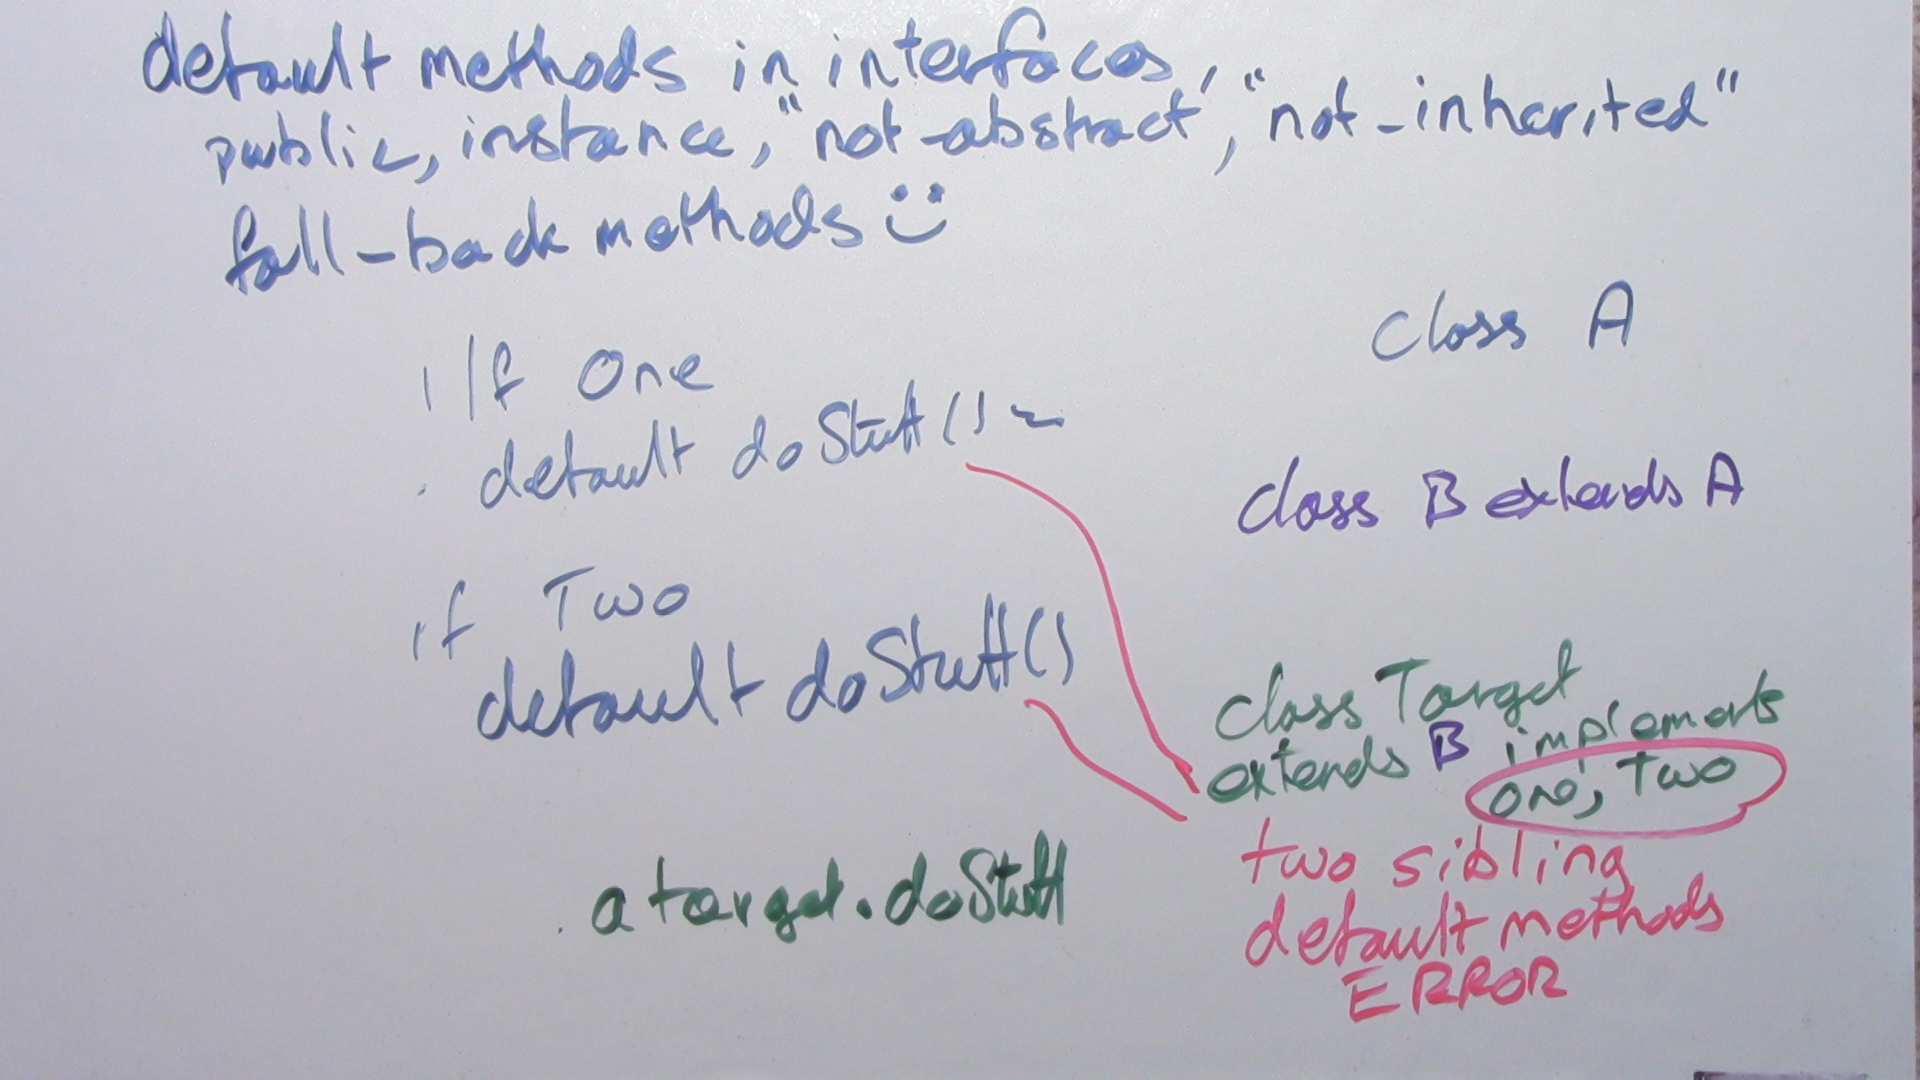 default methods in interfaces
public, instance, "not-abstract", "not-inherited"
fall-back methods
i/f One
default doStuff()
if Two
default doStuff()
a target.doStuff
class A
class B extends A
class Target
extends B implements
One, Two
two sibling
default methods
ERROR